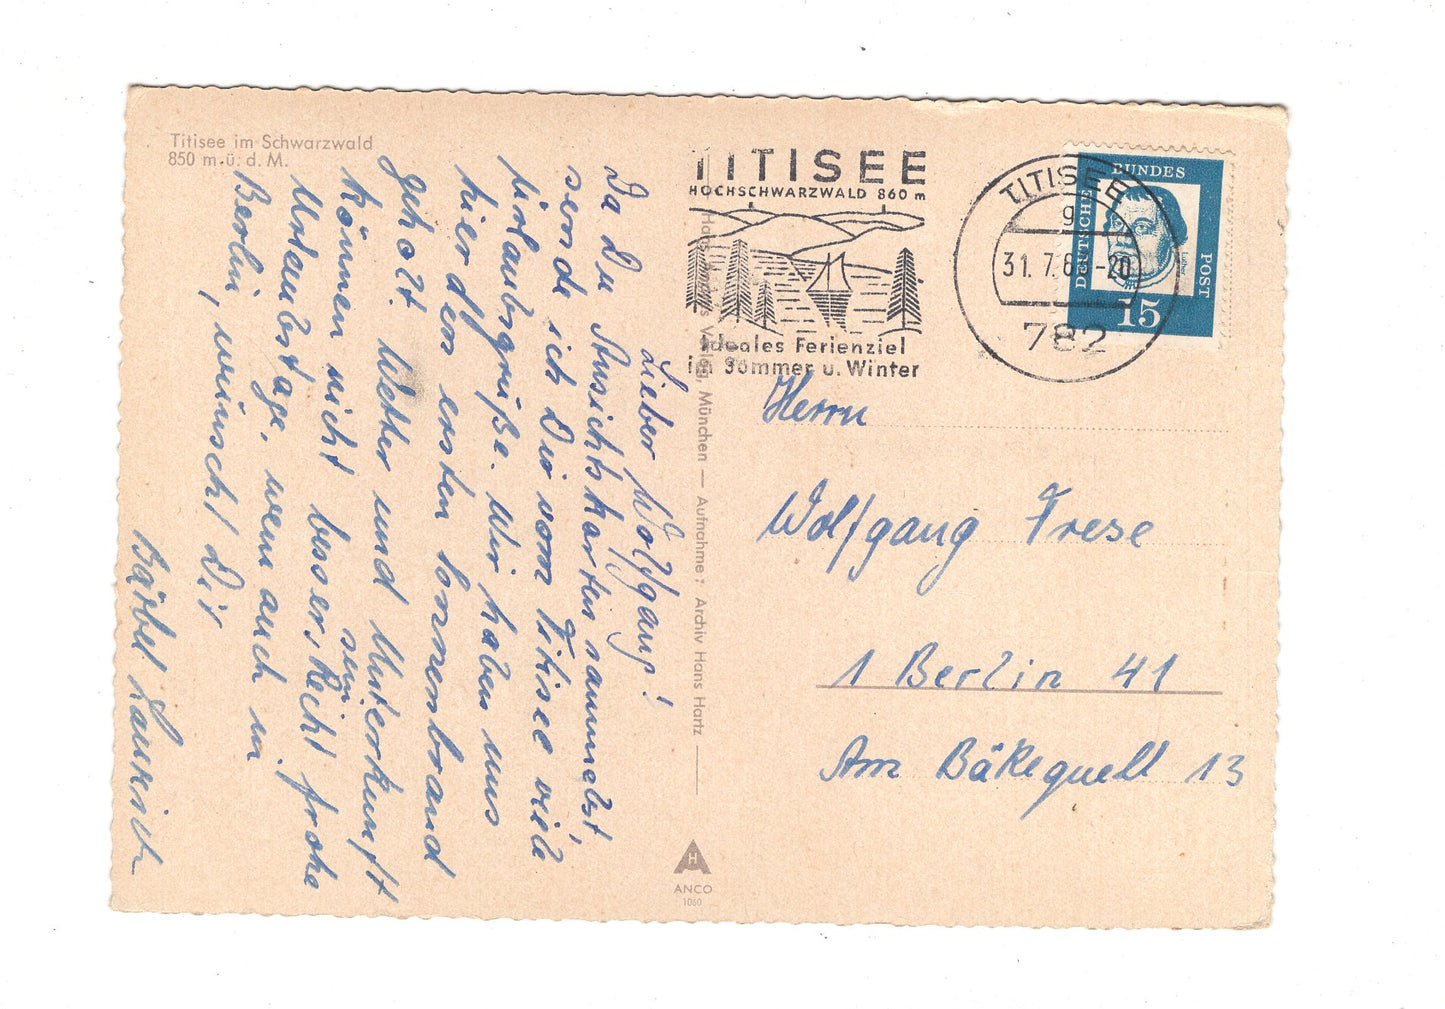 Titisee im Schwarzwald
850 m ü. d. M.
Lieber Wolfgang!
Da Du Ansichtskarten sammelst,
sende ich Dir vom Titisee viele
Urlaubsgrüße. Wir haben uns
hier den ersten Sonnenbrand
geholt. Wetter und Unterkunft
können nicht besser sein.
Recht frohe
Urlaubstage, wenn auch in
Berlin, wünscht Dir
Bärbel
Hans Verlag, München — Aufnahme: Archiv Hans Hartz
TITISEE
HOCHSCHWARZWALD 860 m
Ideales Ferienziel
im Sommer u. Winter
TITISEE
g
31. 7. -20
782
DEUTSCHE BUNDES POST
15
Herrn
Wolfgang Frese
1 Berlin 41
Am Bäkequell 13
H
ANCO
1060